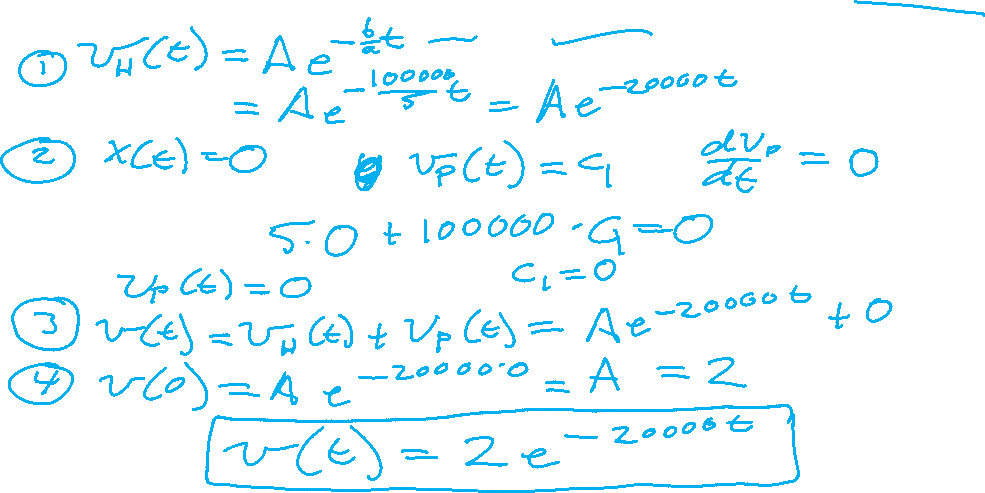 ① v_H(t) = A e^{-b/a t}
= A e^{-100000/5 t} = A e^{-20000t}
② x(t) = 0 v_p(t) = c_1 dv_p/dt = 0
5·0 + 100000·c_1 = 0
v_p(t) = 0 c_1 = 0
③ v(t) = v_H(t) + v_p(t) = A e^{-20000t} + 0
④ v(0) = A e^{-20000·0} = A = 2
v(t) = 2 e^{-20000t}